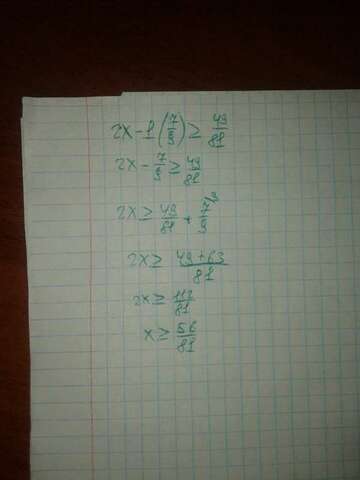 2x - 1(7/9) ≥ 49/81
2x - 7/9 ≥ 49/81
2x ≥ 49/81 + 7/9 ⁹
2x ≥ 49+63/81
2x ≥ 112/81
x ≥ 56/81